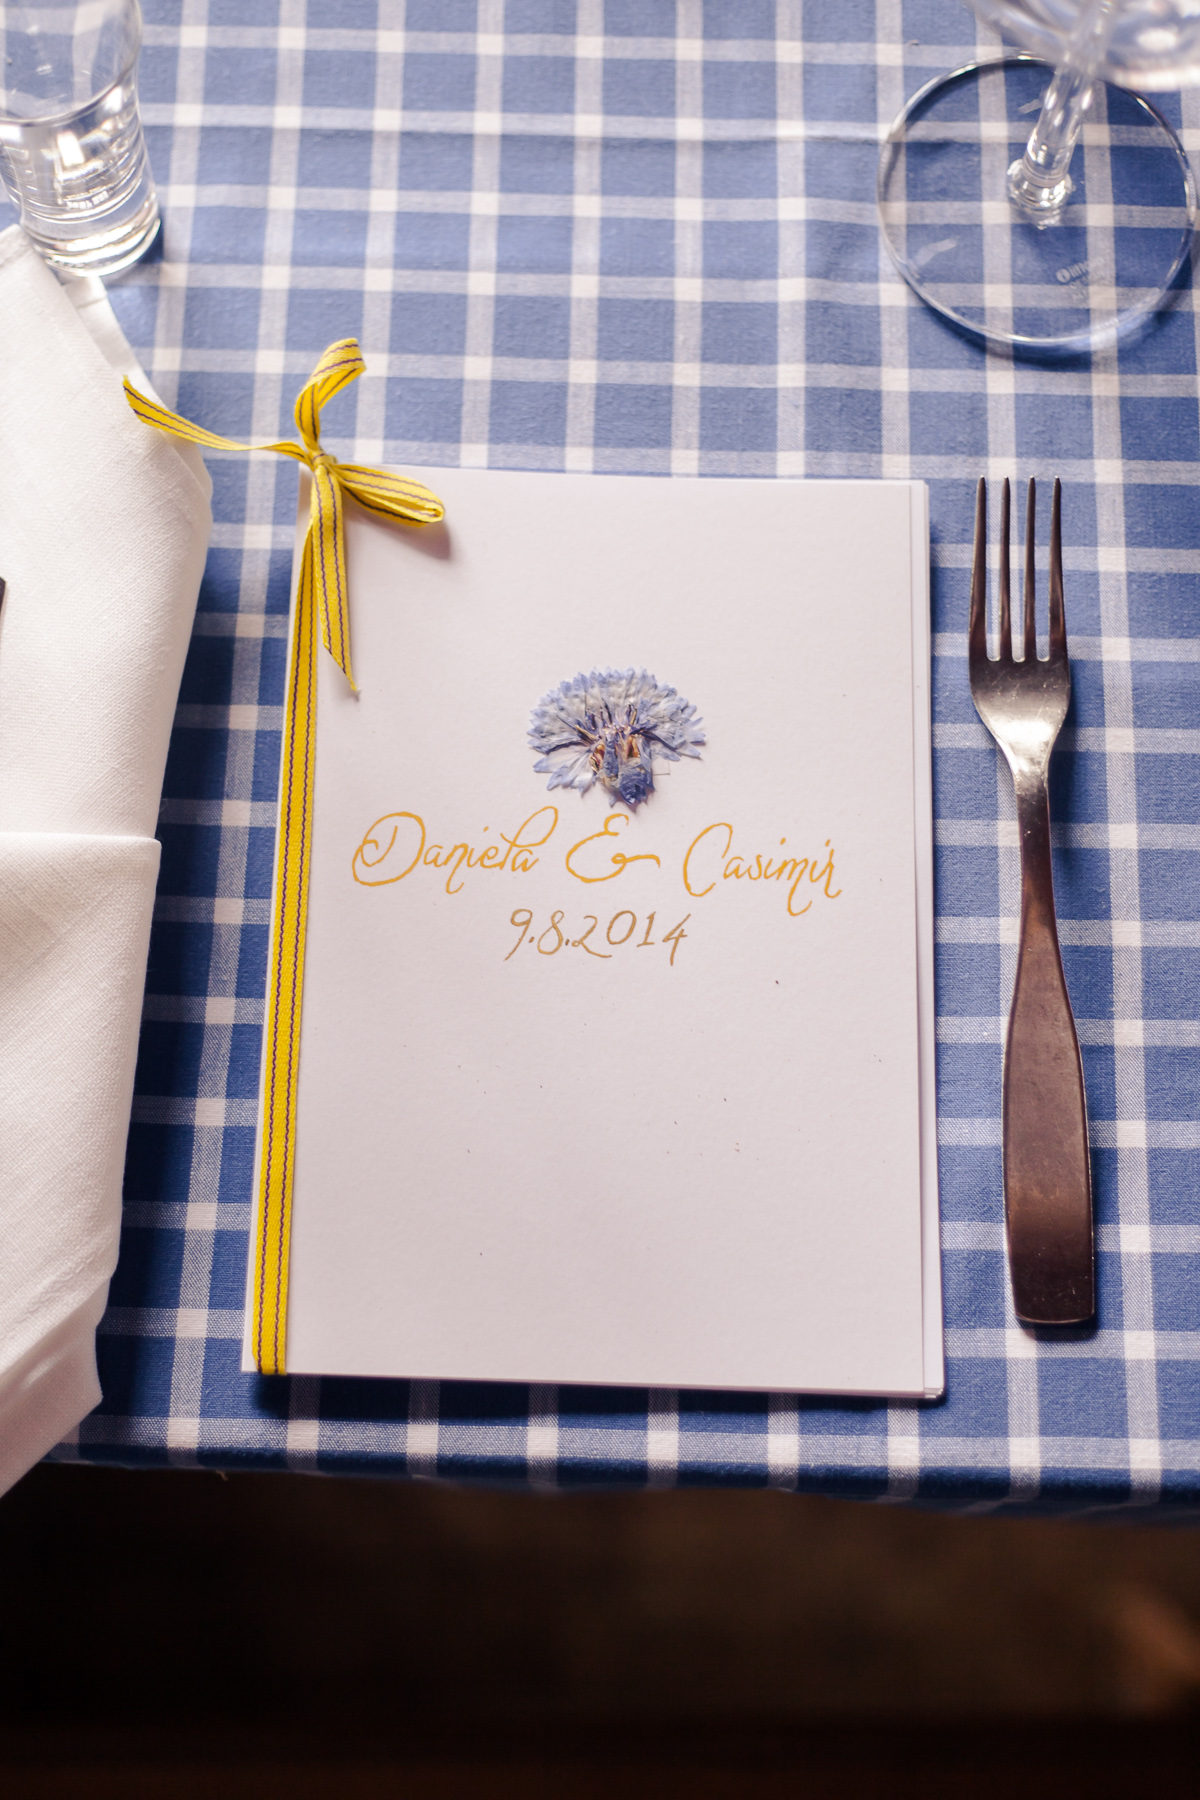 Daniela & Casimir
9.8.2014